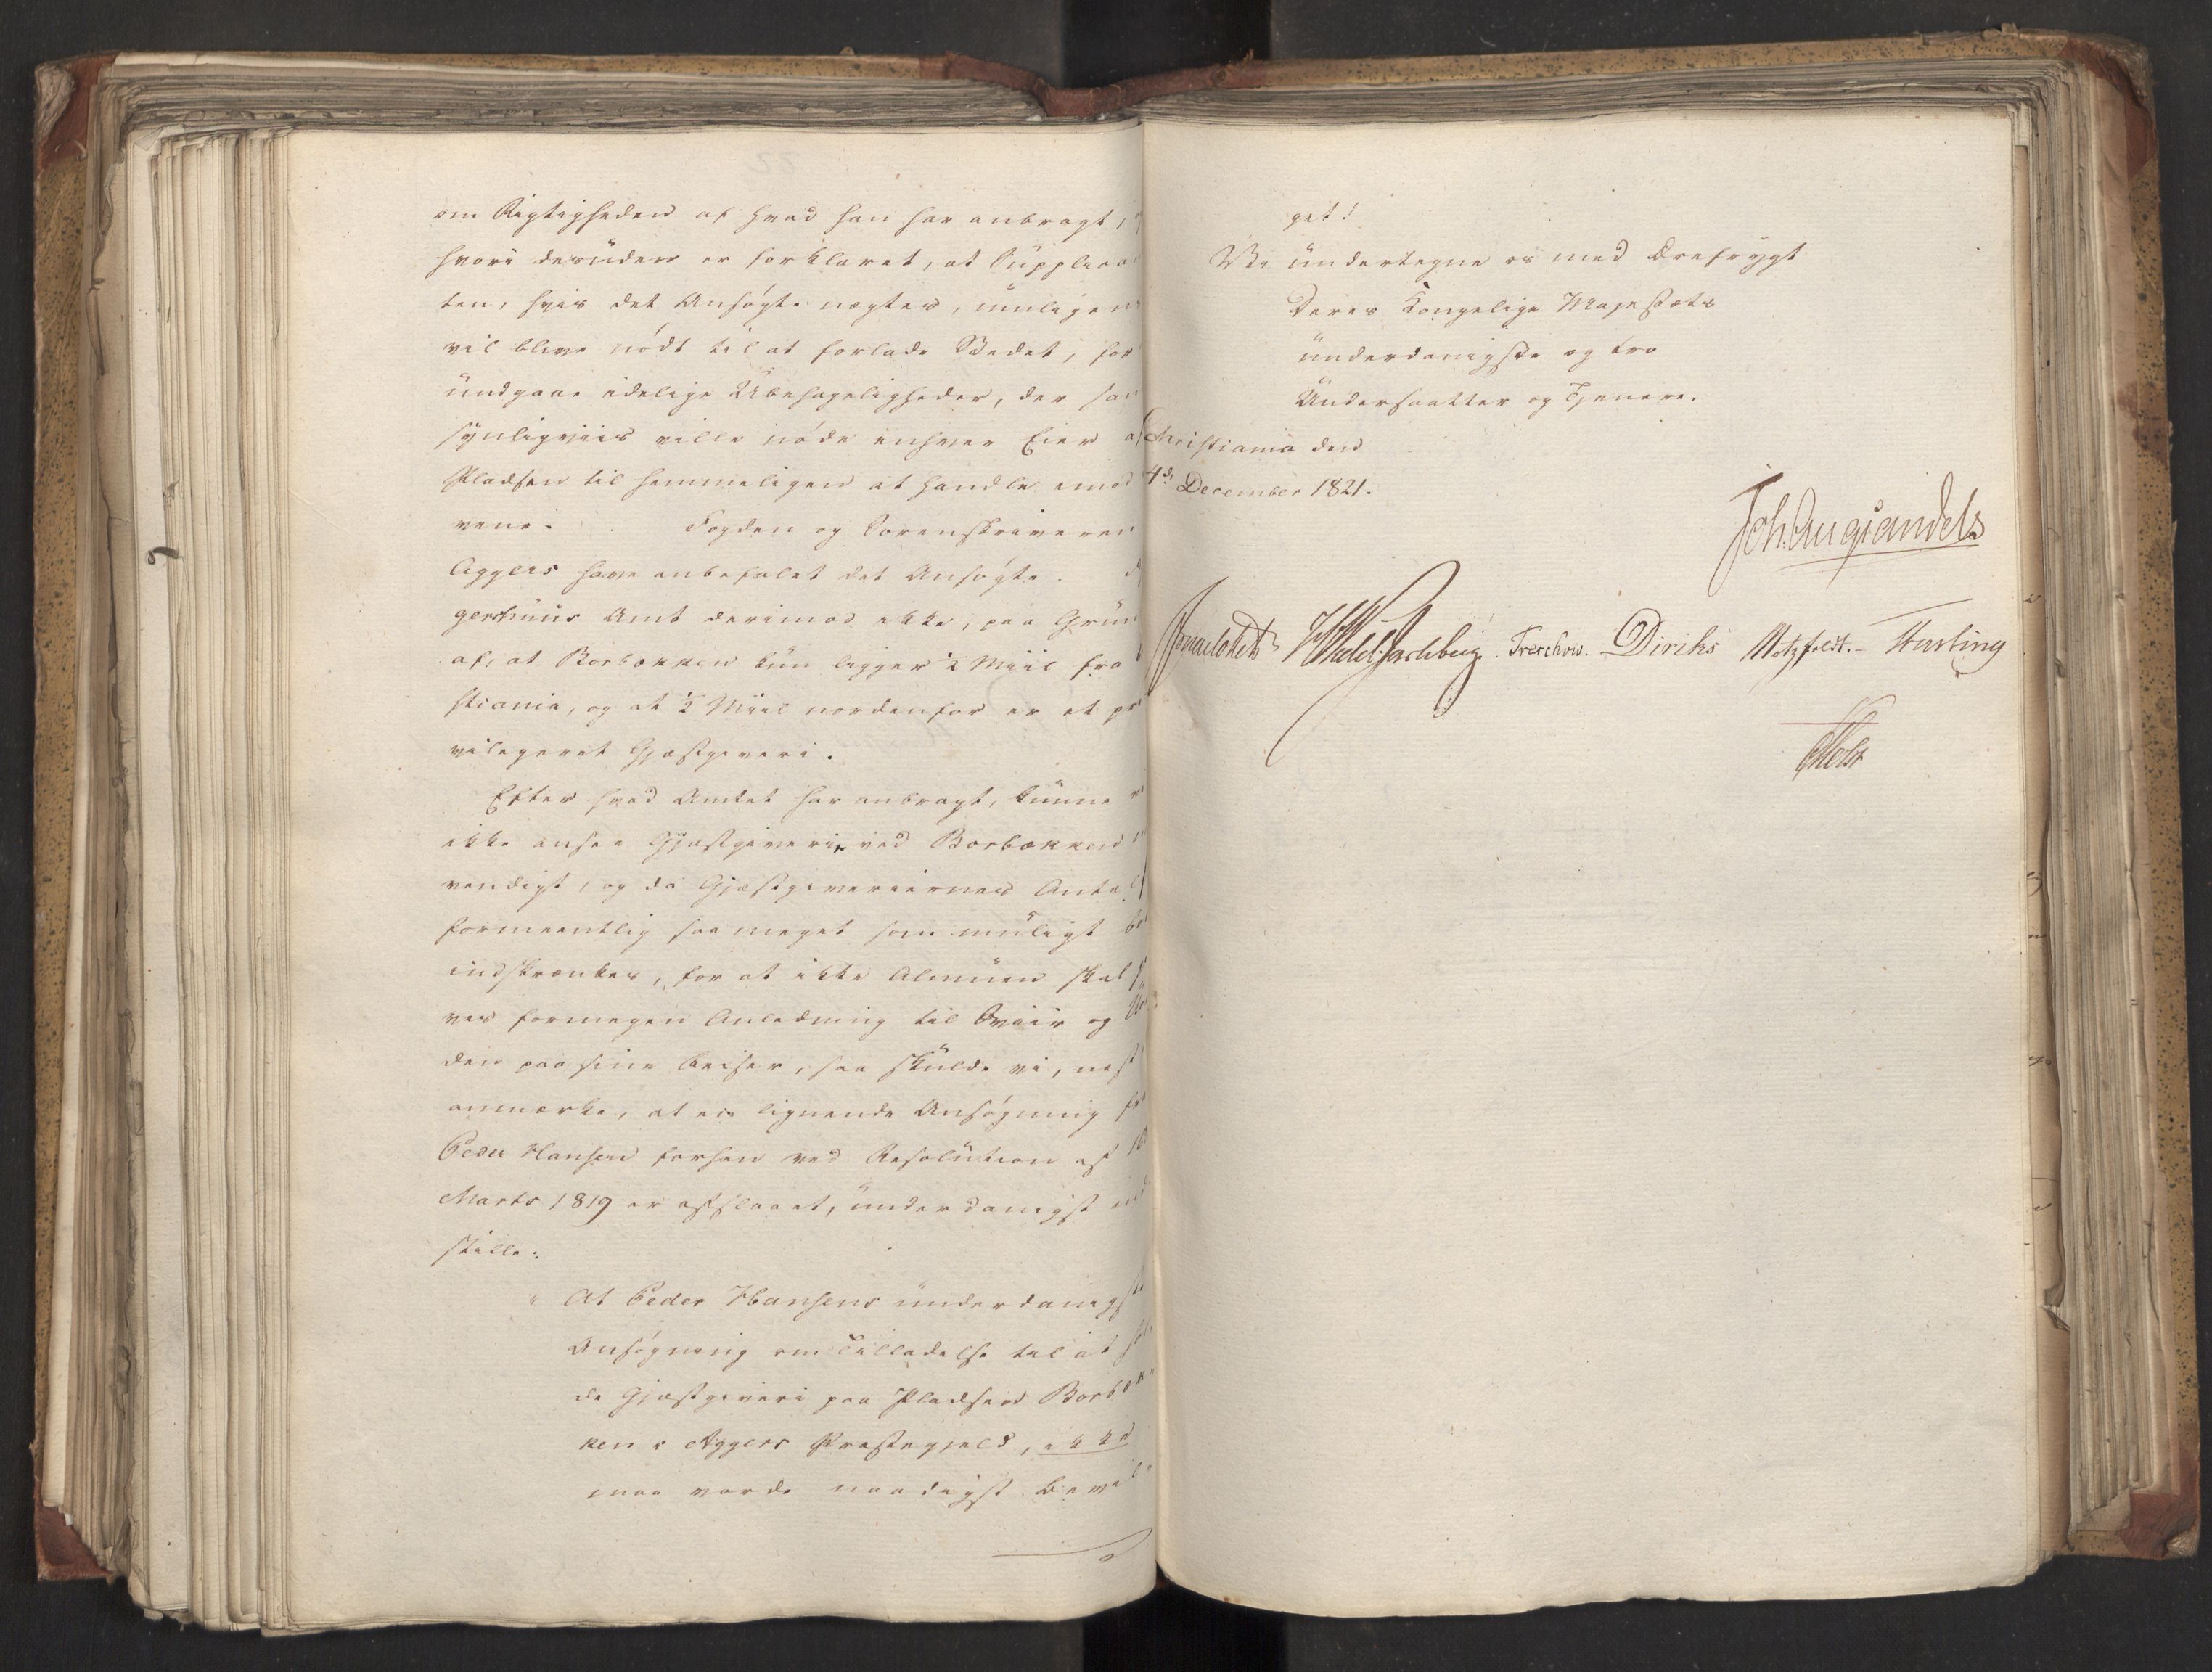 om Rigtigheden af hvad han har anbragt,
hvori desuden er forklaret, at Supplican
ten, hvis det Ansøgte nægtes, muligen
vil blive nødt til at forlade Stedet, for
undgaae idelige Ubehageligheder, der san
synligviis ville nøde enhver Eier af
Pladsen til hemmeligen at handle imod
vene. Fogden og Sorenskriveren
Aggers have anbefalet det Ansøgte.
gershuus Amt derimod ikke, paa Grun
af, at Borbækken kun ligger ½ Miil fra
stiania, og at ½ Miil nordenfor er et pr
vilegeret Gjæstgiveri.
Efter hvad Amtet har anbragt, kunne
ikke ansee Gjæstgiverie ved Borbækken
vendigt, og da Gjæstgiveriernes Antal
formeentlig saa meget som muligt bø
indskrænkes, for at ikke Almuen skal
ves formegen Anledning til Sviir og
den paa sine Reiser, saa skulde vi, næst
anmærke, at en lignende Ansøgning fr
Peder Hansen forhen ved Resolution af
Marts 1819 er afslaaet, underdanigst ind
stille:
" At Peder Hansens underdanigste
Ansøgning om Tilladelse til at hol
de Gjæstgiveri paa Pladsen Borbæk
ken i Aggers Præstegjeld, ikke
maa vorde naadigst bevil
get!
Vi undertegne os med Ærefrygt
Deres Kongelige Majestæts
underdanigste og tro
Undersaatter og Tjenere.
Christiania den
4de December 1821.
Joh. Aug. Sandels
Sommerhielm HWedelJarlsberg Treschow. Diriks Motzfeldt. Fasting
Holst